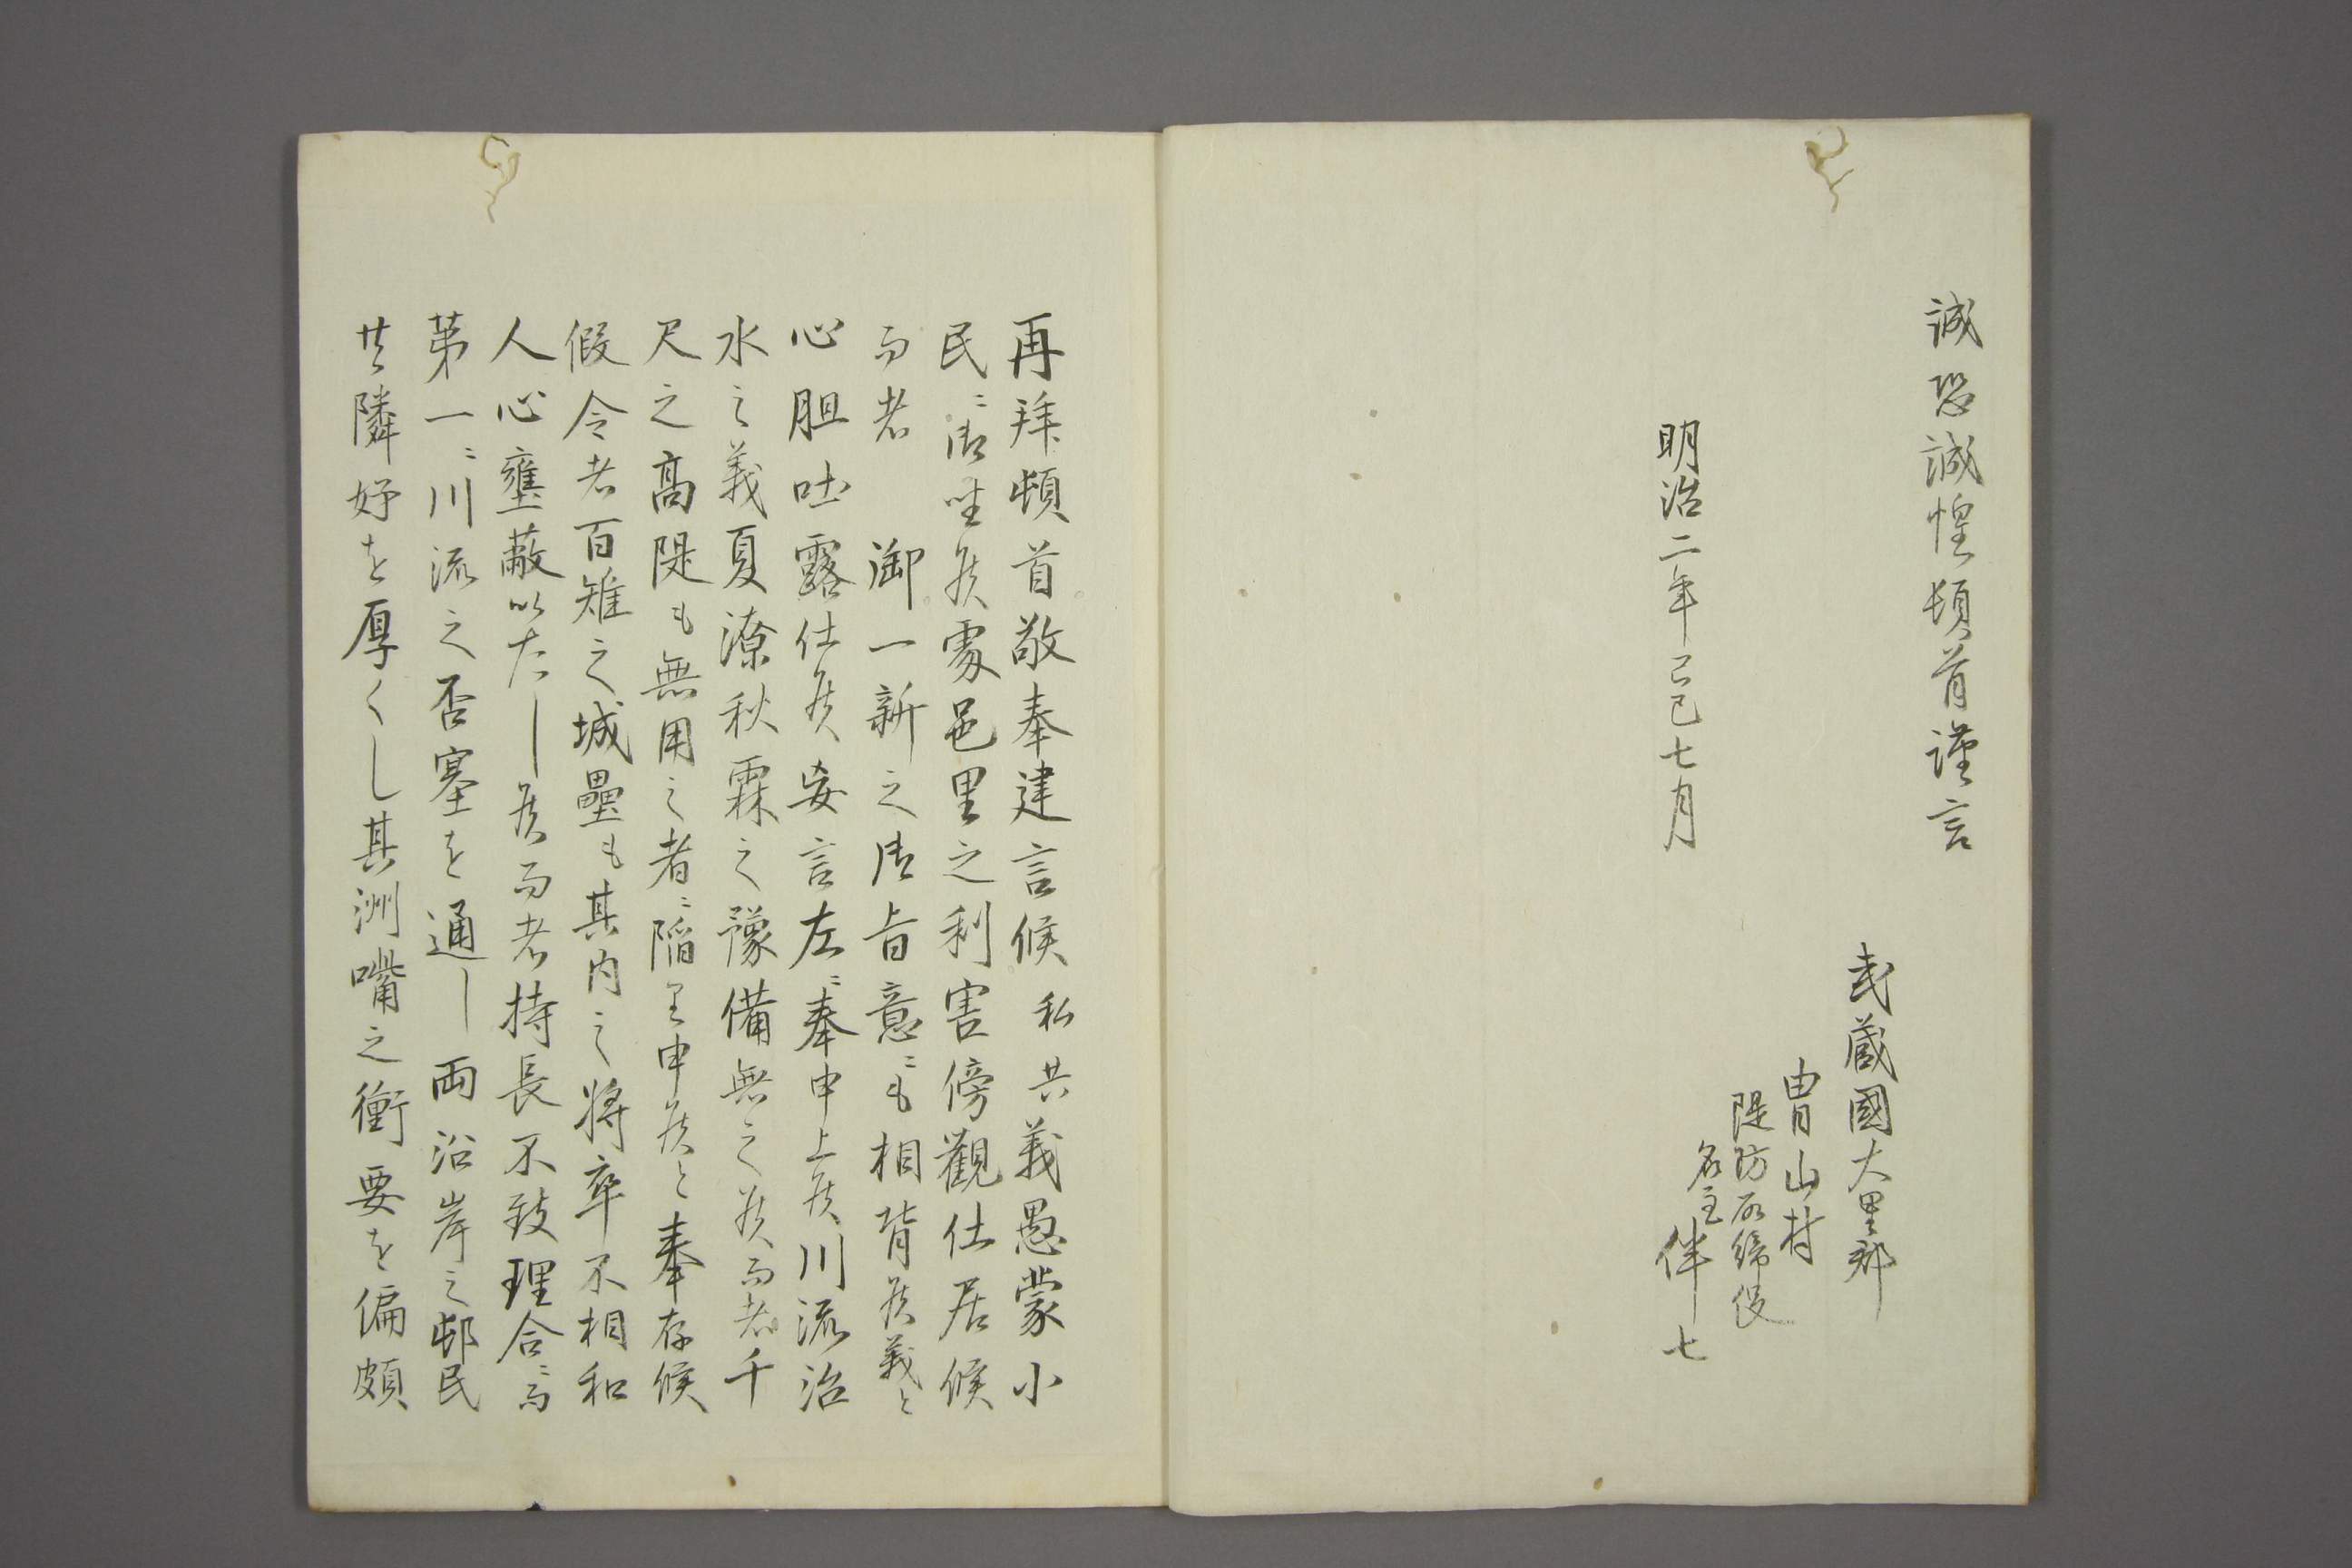 誠恐誠惶頓首謹言
武蔵國大里郡
冑山村
堤防取締役
名主 伴七
明治二年己巳七月
再拜頓首敬奉建言候私共義愚蒙小
民ニ御坐候處邑里之利害傍觀仕居候
而者 御一新之御旨意ニも相背候義と
心胆吐露仕候妄言左ニ奉申上候川流治
水之義夏潦秋霖之豫備無之候而者千
尺之高隄も無用之者ニ陥り申候と奉存候
假令者百雉之城壘も其内之将卒不相和
人心壅蔽いたし候而者持長不致理合ニ而
第一ニ川流之否塞を通し両沿岸之邨民
共隣好を厚くし其洲嘴之衝要を偏頗